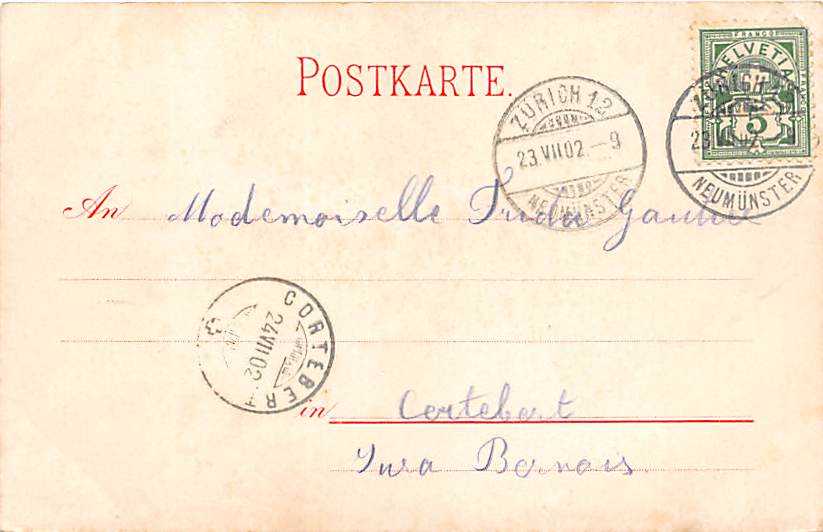 POSTKARTE.
FRANCO
HELVETIA
5
ZÜRICH 12
23.VII.02.–9
NEUMÜNSTER
ZÜRICH 12
23.VII.02
NEUMÜNSTER
An Mademoiselle
CORTEBERT
24 VII 02
in Cortebert
Jura Bernois.